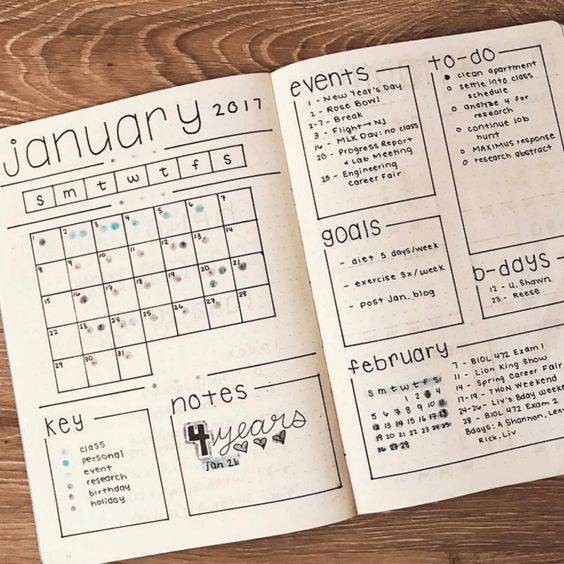 january 2017
s m t w t f s
1 2 3 4 5 6 7
8 9 10 11 12 13 14
15 16 17 18 19 20 21
22 23 24 25 26 27 28
29 30 31
key
class
personal
event
research
birthday
holiday
notes
4 years
Jan 26
events
1 - New Year's Day
2 - Rose Bowl
2-7 - Break
3 - Flight → NJ
16 - MLK Day: no class
20 - Progress Report
& Lab Meeting
25 - Engineering
Career Fair
to-do
clean apartment
settle into class
schedule
analyze 4 for
research
continue job
hunt
MAXIMUS response
research abstract
goals
- diet 5 days/week
- exercise 3x/week
- post Jan. blog
b-days
12 - U. Shawn
23 - Reese
february
s m t w t f s
1 2 3 4
5 6 7 8 9 10 11
12 13 14 15 16 17 18
19 20 21 22 23 24 25
26 27 28
7 - BIOL 472 Exam 1
11 - Lion King Show
14 - Spring Career Fair
17-19 - THON Weekend
24-26 - Liv's Bday Week
28 - BIOL 472 Exam 2
Bdays: A. Shannon,
Rick, Liv